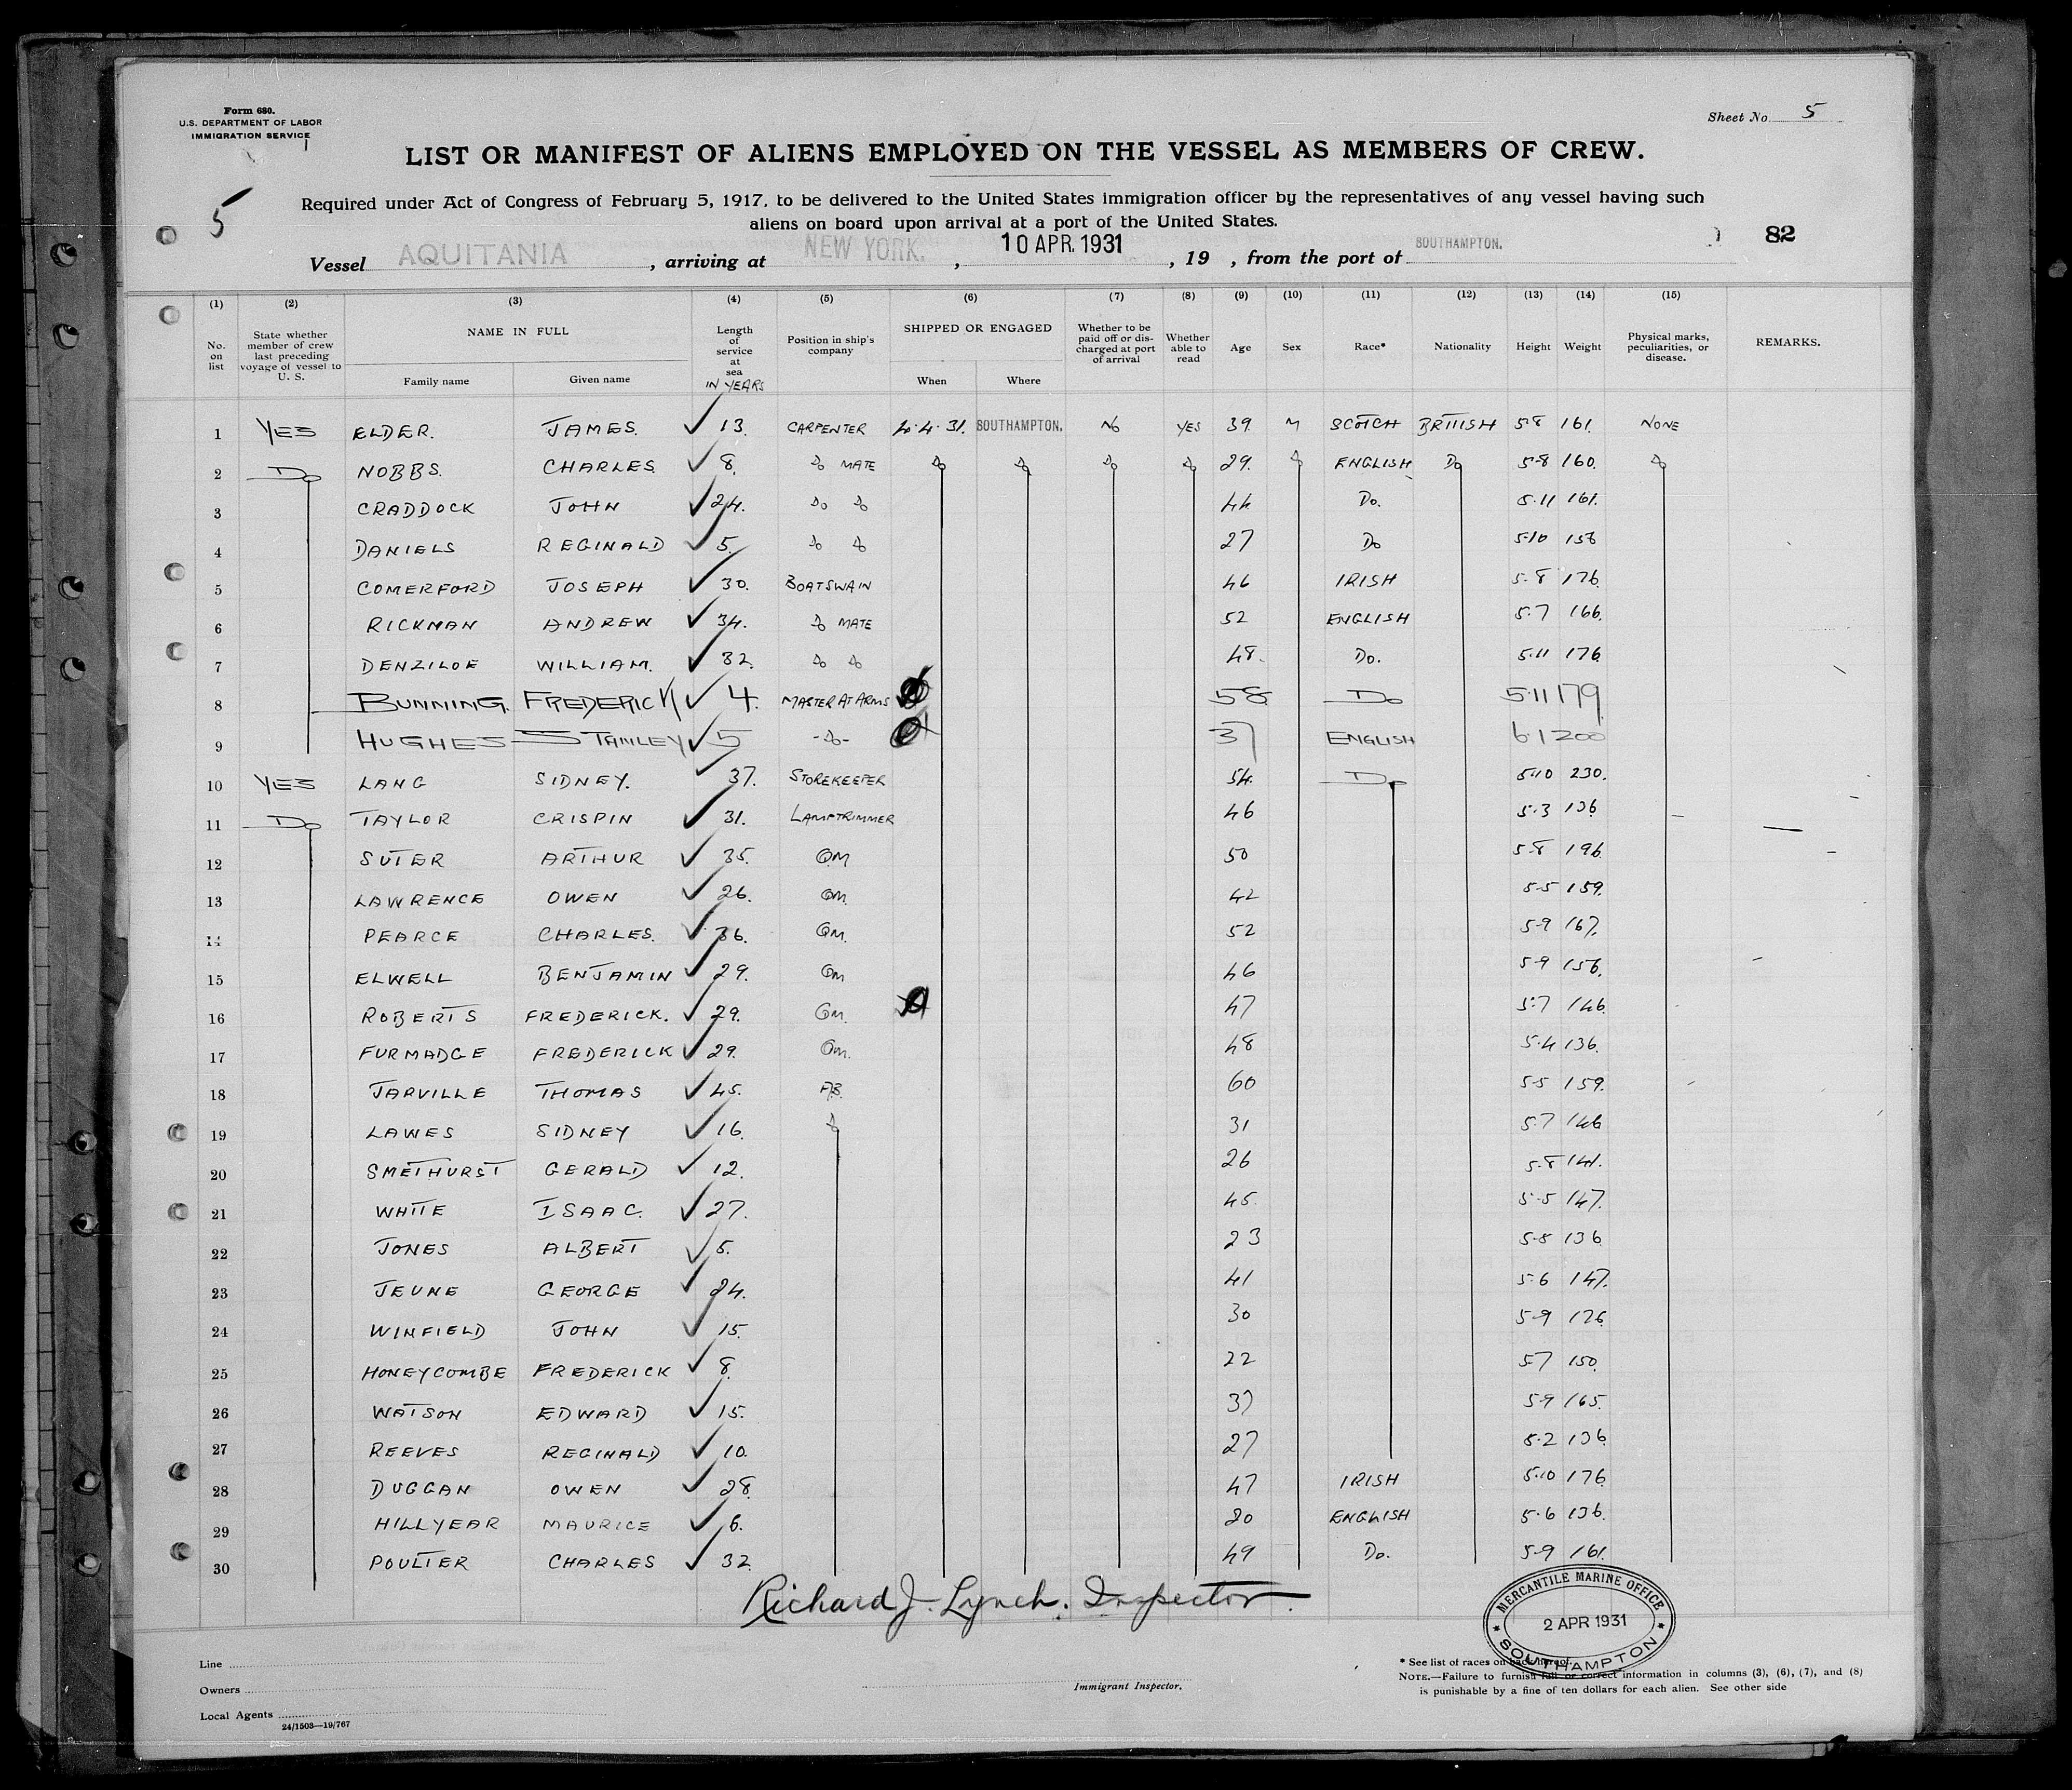 Form 680.
U.S. DEPARTMENT OF LABOR
IMMIGRATION SERVICE
Sheet No. 5
LIST OR MANIFEST OF ALIENS EMPLOYED ON THE VESSEL AS MEMBERS OF CREW.
5
Required under Act of Congress of February 5, 1917, to be delivered to the United States immigration officer by the representatives of any vessel having such
aliens on board upon arrival at a port of the United States.
82
Vessel AQUITANIA, arriving at NEW YORK., 10 APR. 1931, 19 , from the port of SOUTHAMPTON.
(1) (2) (3) (4) (5) (6) (7) (8) (9) (10) (11) (12) (13) (14) (15)
No. on list State whether member of crew last preceding voyage of vessel to U. S. NAME IN FULL Family name Given name Length of service at sea IN YEARS Position in ship's company SHIPPED OR ENGAGED When Where Whether to be paid off or discharged at port of arrival Whether able to read Age Sex Race* Nationality Height Weight Physical marks, peculiarities, or disease. REMARKS.
1 YES ELDER. JAMES. ✓ 13. CARPENTER 4.4.31. SOUTHAMPTON. NO YES 39. M SCOTCH BRITISH 5.8 161. NONE
2 Do NOBBS. CHARLES. ✓ 8. Do MATE Do Do Do Do 29. Do ENGLISH Do 5.8 160. Do
3 CRADDOCK JOHN ✓ 24. Do Do 44 Do. 5.11 161.
4 DANIELS REGINALD ✓ 5. Do Do 27 Do 5.10 156
5 COMERFORD JOSEPH ✓ 30. BOATSWAIN 46 IRISH 5.8 176.
6 RICKMAN ANDREW ✓ 34. Do MATE 52 ENGLISH 5.7 166.
7 DENZILOE WILLIAM. ✓ 32. Do Do 48. Do. 5.11 176
8 BUNNING. FREDERICK ✓ 4. MASTER AT ARMS 58 Do 5.11 179
9 HUGHES STANLEY ✓ 5 -Do- 37 ENGLISH 6.1 200
10 YES LANG SIDNEY. ✓ 37. STOREKEEPER 54. Do 5.10 230.
11 Do TAYLOR CRISPIN ✓ 31. LAMPTRIMMER 46 5.3 136
12 SUTER ARTHUR ✓ 35. QM 50 5.8 196
13 LAWRENCE OWEN ✓ 26. QM. 42 5.5 159.
14 PEARCE CHARLES. ✓ 36. QM. 52 5.9 167.
15 ELWELL BENJAMIN ✓ 29. QM 46 5.9 156.
16 ROBERTS FREDERICK. ✓ 29. QM. 47 5.7 146
17 FURMADGE FREDERICK ✓ 29. QM. 48 5.4 136.
18 JARVILLE THOMAS ✓ 45. AB. 60 5.5 159.
19 LAWES SIDNEY ✓ 16. Do 31 5.7 146
20 SMETHURST GERALD ✓ 12. 26 5.8 141.
21 WHITE ISAAC. ✓ 27. 45. 5.5 147.
22 JONES ALBERT ✓ 5. 23 5.8 136
23 JEUNE GEORGE ✓ 24. 41 5.6 147.
24 WINFIELD JOHN ✓ 15. 30 5.9 126
25 HONEYCOMBE FREDERICK ✓ 8. 22 5.7 150.
26 WATSON EDWARD ✓ 15. 37 5.9 165.
27 REEVES REGINALD ✓ 10. 27 5.2 136
28 DUGGAN OWEN ✓ 28. 47 IRISH 5.10 176
29 HILLYEAR MAURICE ✓ 6. 20 ENGLISH 5.6 136.
30 POULTER CHARLES ✓ 32. 49 Do. 5.9 161.
Richard J. Lynch. Inspector.
MERCANTILE MARINE OFFICE
2 APR 1931
SOUTHAMPTON
Line
Owners
Local Agents
24/1503—19/767
Immigrant Inspector.
* See list of races on back hereof.
NOTE.—Failure to furnish full or correct information in columns (3), (6), (7), and (8)
is punishable by a fine of ten dollars for each alien. See other side